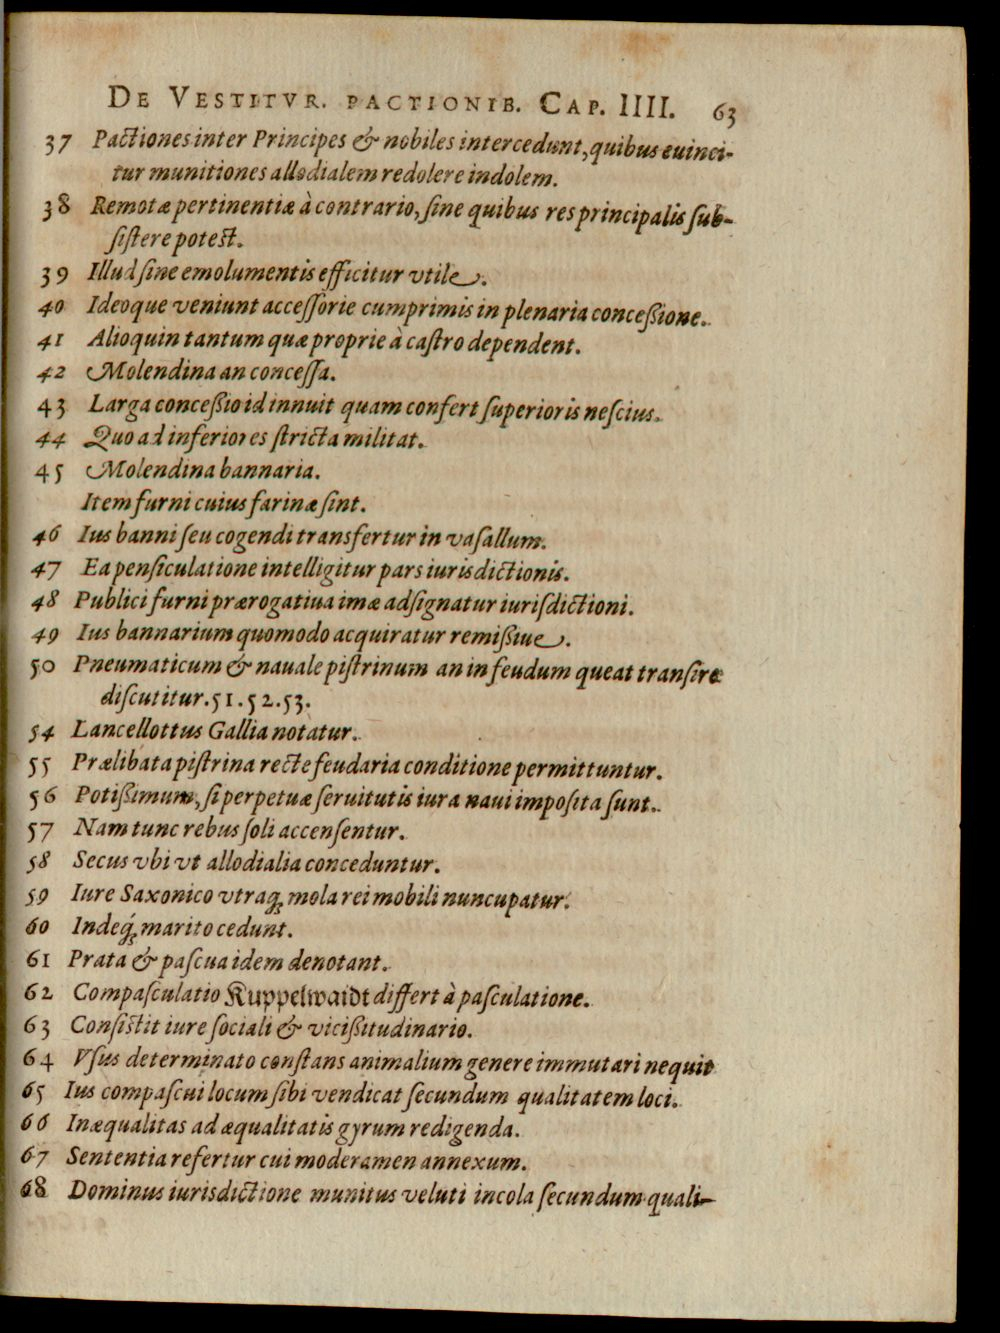 DE VESTITVR. PACTIONIB. CAP. IIII. 63
37 Pactiones inter Principes & nobiles intercedunt, quibus euinci-
tur munitiones allodialem redolere indolem.
38 Remotæ pertinentiæ à contrario, sine quibus res principalis sub-
sistere potest.
39 Illud sine emolumentis efficitur vtile.
40 Ideoque veniunt accessorie cumprimis in plenaria concessione.
41 Alioquin tantum quæ proprie à castro dependent.
42 Molendina an concessa.
43 Larga concessio id innuit quam confert superioris nescius.
44 Quo ad inferiores stricta militat.
45 Molendina bannaria.
Item furni cuius farinæ sint.
46 Ius banni seu cogendi transfertur in vasallum.
47 Ea pensiculatione intelligitur pars iurisdictionis.
48 Publici furni prærogatiua imæ adsignatur iurisdictioni.
49 Ius bannarium quomodo acquiratur remissiue.
50 Pneumaticum & nauale pistrinum an in feudum queat transire
discutitur. 51. 52. 53.
54 Lancellottus Gallia notatur.
55 Prælibata pistrina recte feudaria conditione permittuntur.
56 Potissimum, si perpetuæ seruitutis iura naui imposita sunt.
57 Nam tunc rebus soli accensentur.
58 Secus vbi vt allodialia conceduntur.
59 Iure Saxonico vtraq; mola rei mobili nuncupatur.
60 Indeq́; marito cedunt.
61 Prata & pascua idem denotant.
62 Compasculatio Kuppelwaidt differt à pasculatione.
63 Consistit iure sociali & vicissitudinario.
64 Vsus determinato constans animalium genere immutari nequit
65 Ius compascui locum sibi vendicat secundum qualitatem loci.
66 Inæqualitas ad æqualitatis gyrum redigenda.
67 Sententia refertur cui moderamen annexum.
68 Dominus iurisdictione munitus veluti incola secundum quali-